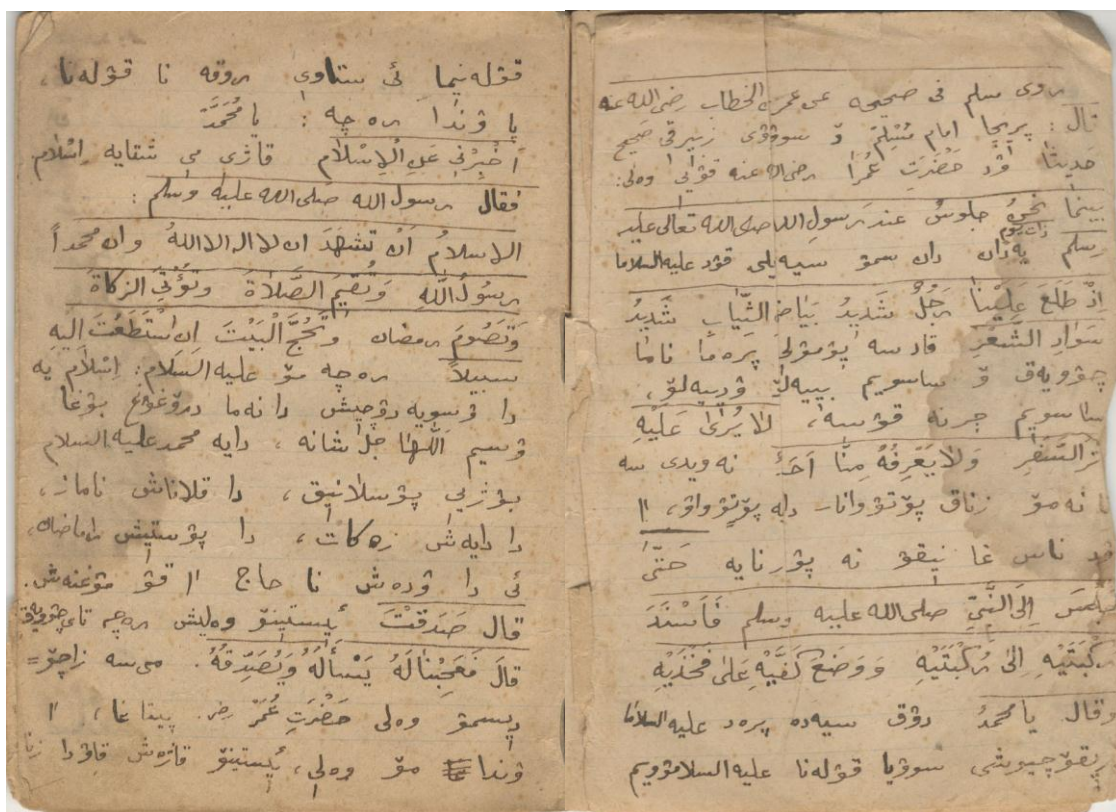 روى مسلم فى صحيحه عن عمر بن الخطاب رضى الله عنه
قال : پريچا امام مُسْلِمْ ۆ صحيح
حديثا اۆد حَضْرَتِ عُمَرا رضى الله عنه قۆيى وەلى:
بينما نحنُ جلوسٌ عند رَسولِ الله صلى الله تعالى عليه
ذات يوم
وسلم يەدان دان سمۆ سيەيلى قۆد عليه السلاما
اِذْ طَلَعَ عَلَيْنا رَجُلٌ شَدِيدُ بَيَاضِ الثِّيَابِ شَدِيدُ
سَوَادِ الشَّعْرِ قادسە پرەما ناما
چۆويەق ۆ ساسويم بييەلۆ
ساسويم جرنە قۆسە، لَا يُرٰى عَلَيْهِ
اَثَرُ السَّفَرِ وَلَا يَعْرِفُهُ مِنَّا اَحَدٌ نە ويدى سە
نا نەمۆ زناق پۆتۆوانا، داە پۆتۆواۆ، اا
اۆد ناس غا نيقۆ نە پۆزنايە حَتّٰى
جَلَسَ اِلَى النَّبِيِّ صلى الله عليه وسلم فَاَسْنَدَ
رُكْبَتَيْهِ اِلٰى رُكْبَتَيْهِ وَوَضَعَ كَفَّيْهِ عَلٰى فَخْذَيْهِ
وقال يا محمدُ دۆق سيەدە پرەد عليه السلاما
سوۋيا قۆلەنا عليه السلامۆويم
قۆلەنيما ئى ستاوى روقە نا قۆلەنا،
يا ۋندا رەچە : يا مُحَمَّدُ
اَخْبِرْنِى عَنِ الْاِسْلَام قاژى مى شتايە اِسْلام
فقال رسول الله صلى الله عليه وسلم :
الاسلامُ اَنْ تَشْهَدَ ان لا اله الا اللهُ وان محمداً
رسُولُ اللهِ وَتُقيمَ الصَّلاةَ وَتُؤْتِىَ الزكاةَ
وَتَصُومَ رمضان وَتَحُجَّ الْبَيْتَ اِنِ اسْتَطَعْتَ اليهِ
سبيلاً رەچە مۆ عليه السَّلَام: اِسْلام يە
دا دانەما درۆغۆغ بۆغا
ۋسيم اللهـا جل شانه ، دايە محمد عليه السلام
بۆژيى پۆسلانيق، دا قلاناش ناماز،
دا دايەش زەكات، دا پۆستيش رامازان،
ئى دا ۋدەش نا حاج اا قۆا مۆغنەش.
قال صَدَقْتَ ئيستينۆ وەليش رەچە تاى چۆويەق
قالَ فَعَجِبْنا لَهُ يَسْأَلُهُ وَيُصَدِّقُهُ. مى سە زاچۆ=
ديسمۆ وەلى حَضْرَتِ عُمَرْ رض. پيتا غا، اا
ۋندا مۆ وەلى، ئيستينۆ قاژەش